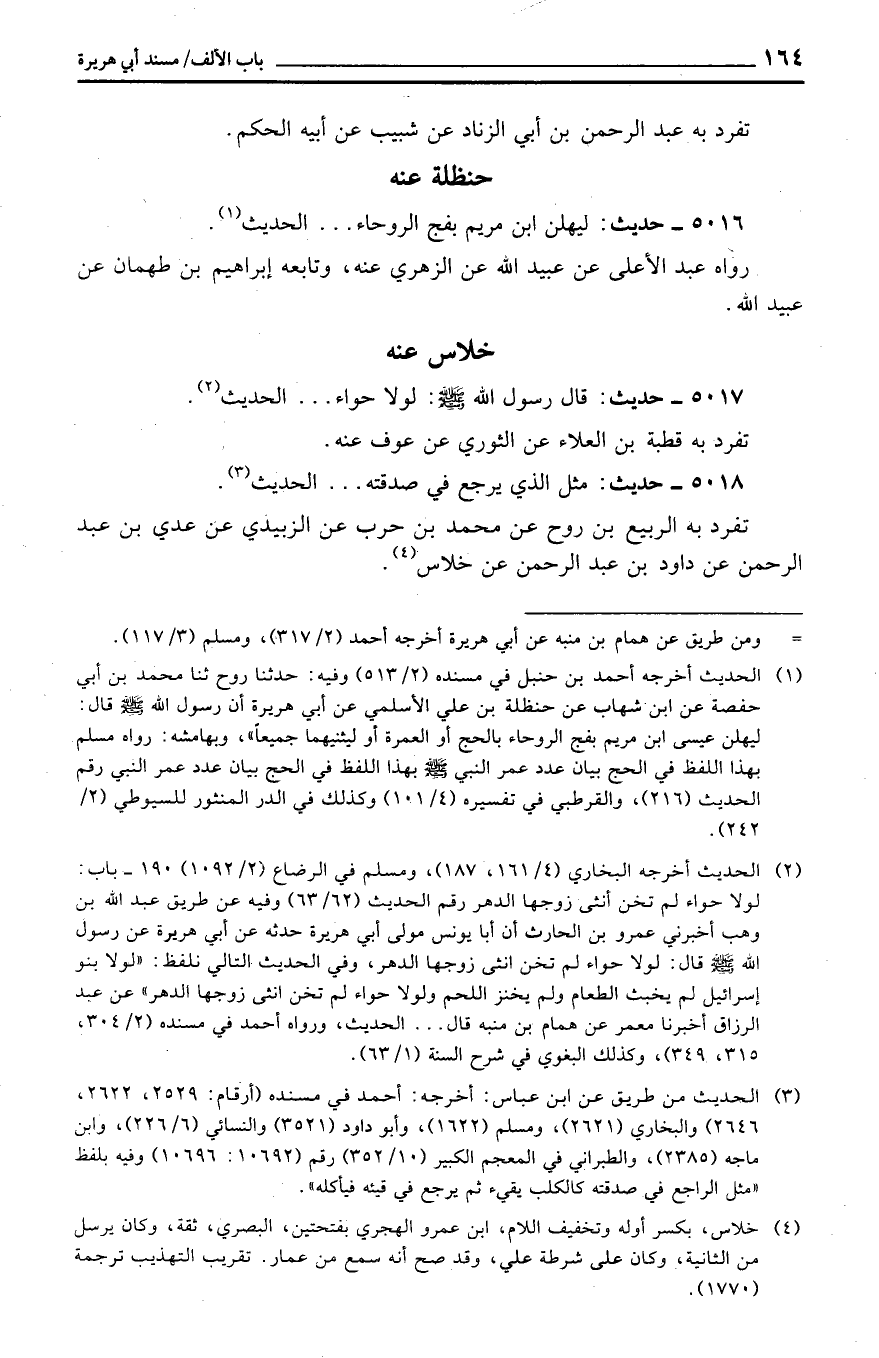 ١٦٤ ــــــــــــــــــــــــــــــــــ باب الألف/ مسند أبي هريرة
تفرد به عبد الرحمن بن أبي الزناد عن شبيب عن أبيه الحكم.
حنظلة عنه
٥٠١٦ ـ حديث: ليهلن ابن مريم بفج الروحاء... الحديث(١).
رواه عبد الأعلى عن عبيد الله عن الزهري عنه، وتابعه إبراهيم بن طهمان عن
عبيد الله.
خلاس عنه
٥٠١٧ ـ حديث: قال رسول الله ﷺ: لولا حواء... الحديث(٢).
تفرد به قطبة بن العلاء عن الثوري عن عوف عنه.
٥٠١٨ ـ حديث: مثل الذي يرجع في صدقته... الحديث(٣).
تفرد به الربيع بن روح عن محمد بن حرب عن الزبيدي عن عدي بن عبد
الرحمن عن داود بن عبد الرحمن عن خلاس(٤).
= ومن طريق عن همام بن منبه عن أبي هريرة أخرجه أحمد (٢/ ٣١٧)، ومسلم (٣/ ١١٧).
(١) الحديث أخرجه أحمد بن حنبل في مسنده (٢/ ٥١٣) وفيه: حدثنا روح ثنا محمد بن أبي
حفصة عن ابن شهاب عن حنظلة بن علي الأسلمي عن أبي هريرة أن رسول الله ﷺ قال:
ليهلن عيسى ابن مريم بفج الروحاء بالحج أو العمرة أو ليثنيهما جميعاً»، وبهامشه: رواه مسلم
بهذا اللفظ في الحج بيان عدد عمر النبي ﷺ بهذا اللفظ في الحج بيان عدد عمر النبي رقم
الحديث (٢١٦)، والقرطبي في تفسيره (٤/ ١٠١) وكذلك في الدر المنثور للسيوطي (٢/
٢٤٢).
(٢) الحديث أخرجه البخاري (٤/ ١٦١، ١٨٧)، ومسلم في الرضاع (٢/ ١٠٩٢) ١٩٠ ـ باب:
لولا حواء لم تخن أنثى زوجها الدهر رقم الحديث (٦٢/ ٦٣) وفيه عن طريق عبد الله بن
وهب أخبرني عمرو بن الحارث أن أبا يونس مولى أبي هريرة حدثه عن أبي هريرة عن رسول
الله ﷺ قال: لولا حواء لم تخن انثى زوجها الدهر، وفي الحديث التالي نلفظ: «لولا بنو
إسرائيل لم يخبث الطعام ولم يخنز اللحم ولولا حواء لم تخن انثى زوجها الدهر» عن عبد
الرزاق أخبرنا معمر عن همام بن منبه قال... الحديث، ورواه أحمد في مسنده (٢/ ٣٠٤،
٣١٥، ٣٤٩)، وكذلك البغوي في شرح السنة (١/ ٦٣).
(٣) الحديث من طريق عن ابن عباس: أخرجه: أحمد في مسنده (أرقام: ٢٥٢٩، ٢٦٢٢،
٢٦٤٦) والبخاري (٢٦٢١)، ومسلم (١٦٢٢)، وأبو داود (٣٥٢١) والنسائي (٦/ ٢٢٦)، وابن
ماجه (٢٣٨٥)، والطبراني في المعجم الكبير (١٠/ ٣٥٢) رقم (١٠٦٩٢: ١٠٦٩٦) وفيه بلفظ
«مثل الراجع في صدقته كالكلب يقيء ثم يرجع في قيئه فيأكله».
(٤) خلاس، بكسر أوله وتخفيف اللام، ابن عمرو الهجري بفتحتين، البصري، ثقة، وكان يرسل
من الثانية، وكان على شرطة علي، وقد صح أنه سمع من عمار. تقريب التهذيب ترجمة
(١٧٧٠).